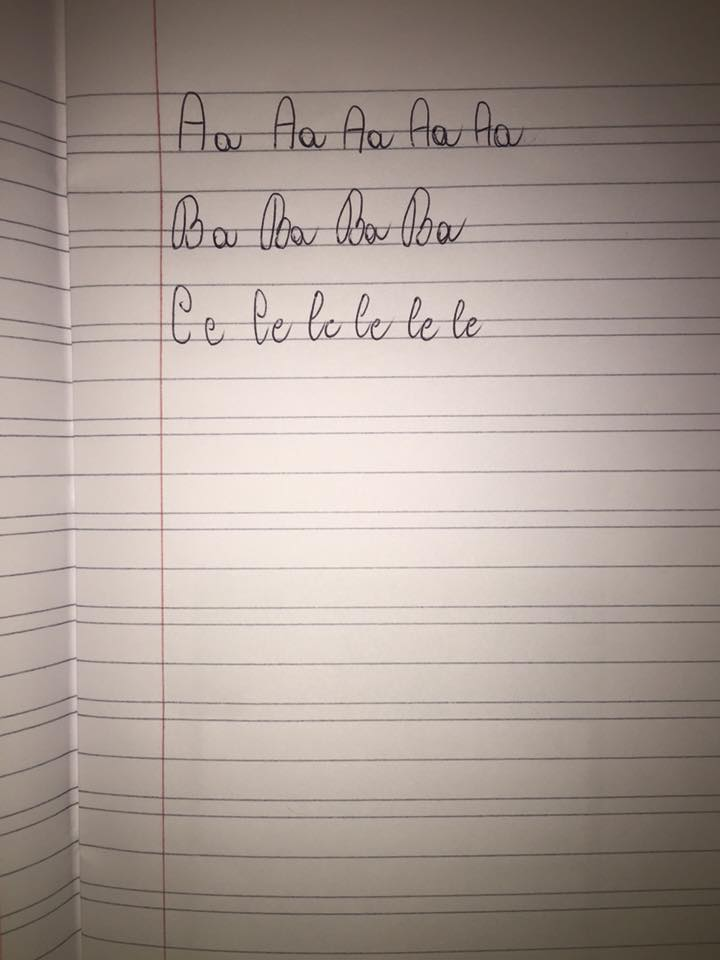 Aa Aa Aa Aa Aa
Ba Ba Ba Ba
Ce Ce Ce Ce Ce Ce